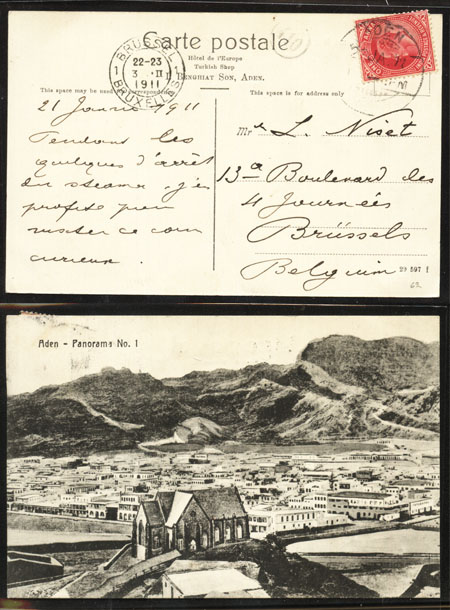 Carte postale
Hôtel de l'Europe
Turkish Shop
BENGHIAT SON, ADEN.
BRUSSEL
1 22-23 1
3 II
1911
BRUXELLES
ADEN
This space may be used for correspondence
This space is for address only
21 Janvier 1911
Pendant les
quelques d'arrêt
du steamer j'en
profite pour
visiter ce coin
curieux.
Mr L. Niset
13a Boulevard des
4 Journées
Brüssels
Belgium
29 597 I
Aden - Panorama No. 1